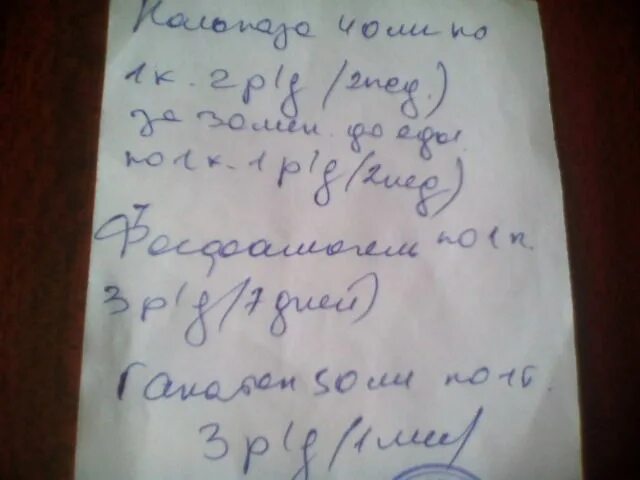 Нольпаза 40мг по
1к. 2 р/д (2нед.)
за 30мин. до еды.
по 1к. 1 р/д (2нед)
Фосфалюгель по 1п.
3 р/д (7 дней)
Ганатон 50мг по 1т.
3 р/д (1мес)